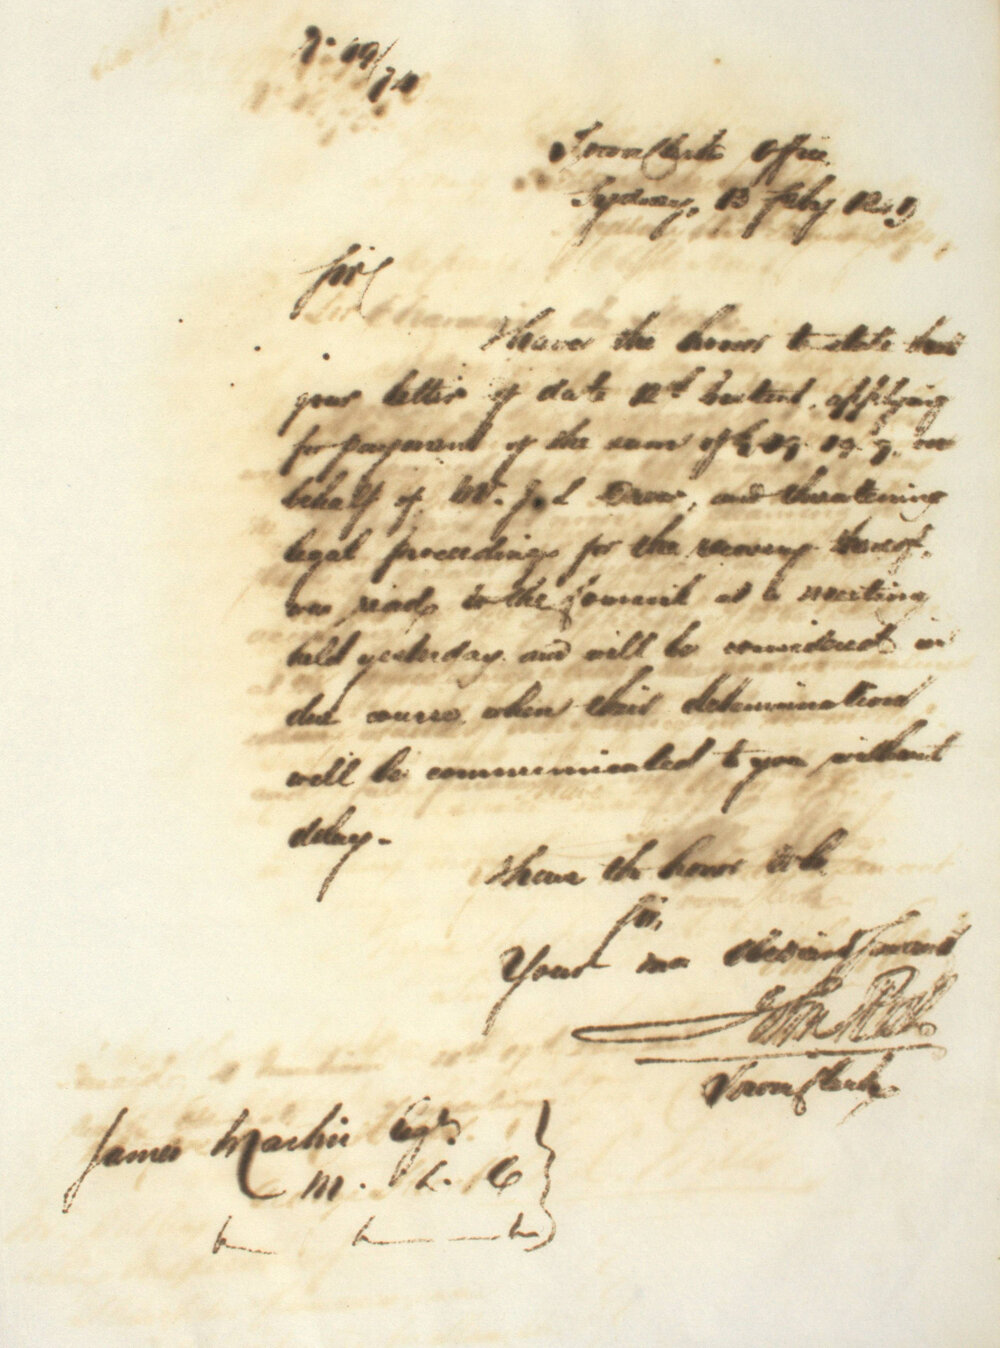 49/74
Town Clerks Office
Sydney, 13 Feby 1849
Sir
I have the honor to state that
your letter of date 12th Instant, applying
for payment of the sum of £ 19. 19. 9, on
behalf of Mr. J. L and threatening
legal proceedings for the recovery thereof,
was read to the Council at a meeting
held yesterday and will be considered in
due course when their determination
will be communicated to you without
delay.-
I have the honor to be
Sir,
Your mo Obedient Servant
John
Town Clerk
James Martin Esqr
M. L. C